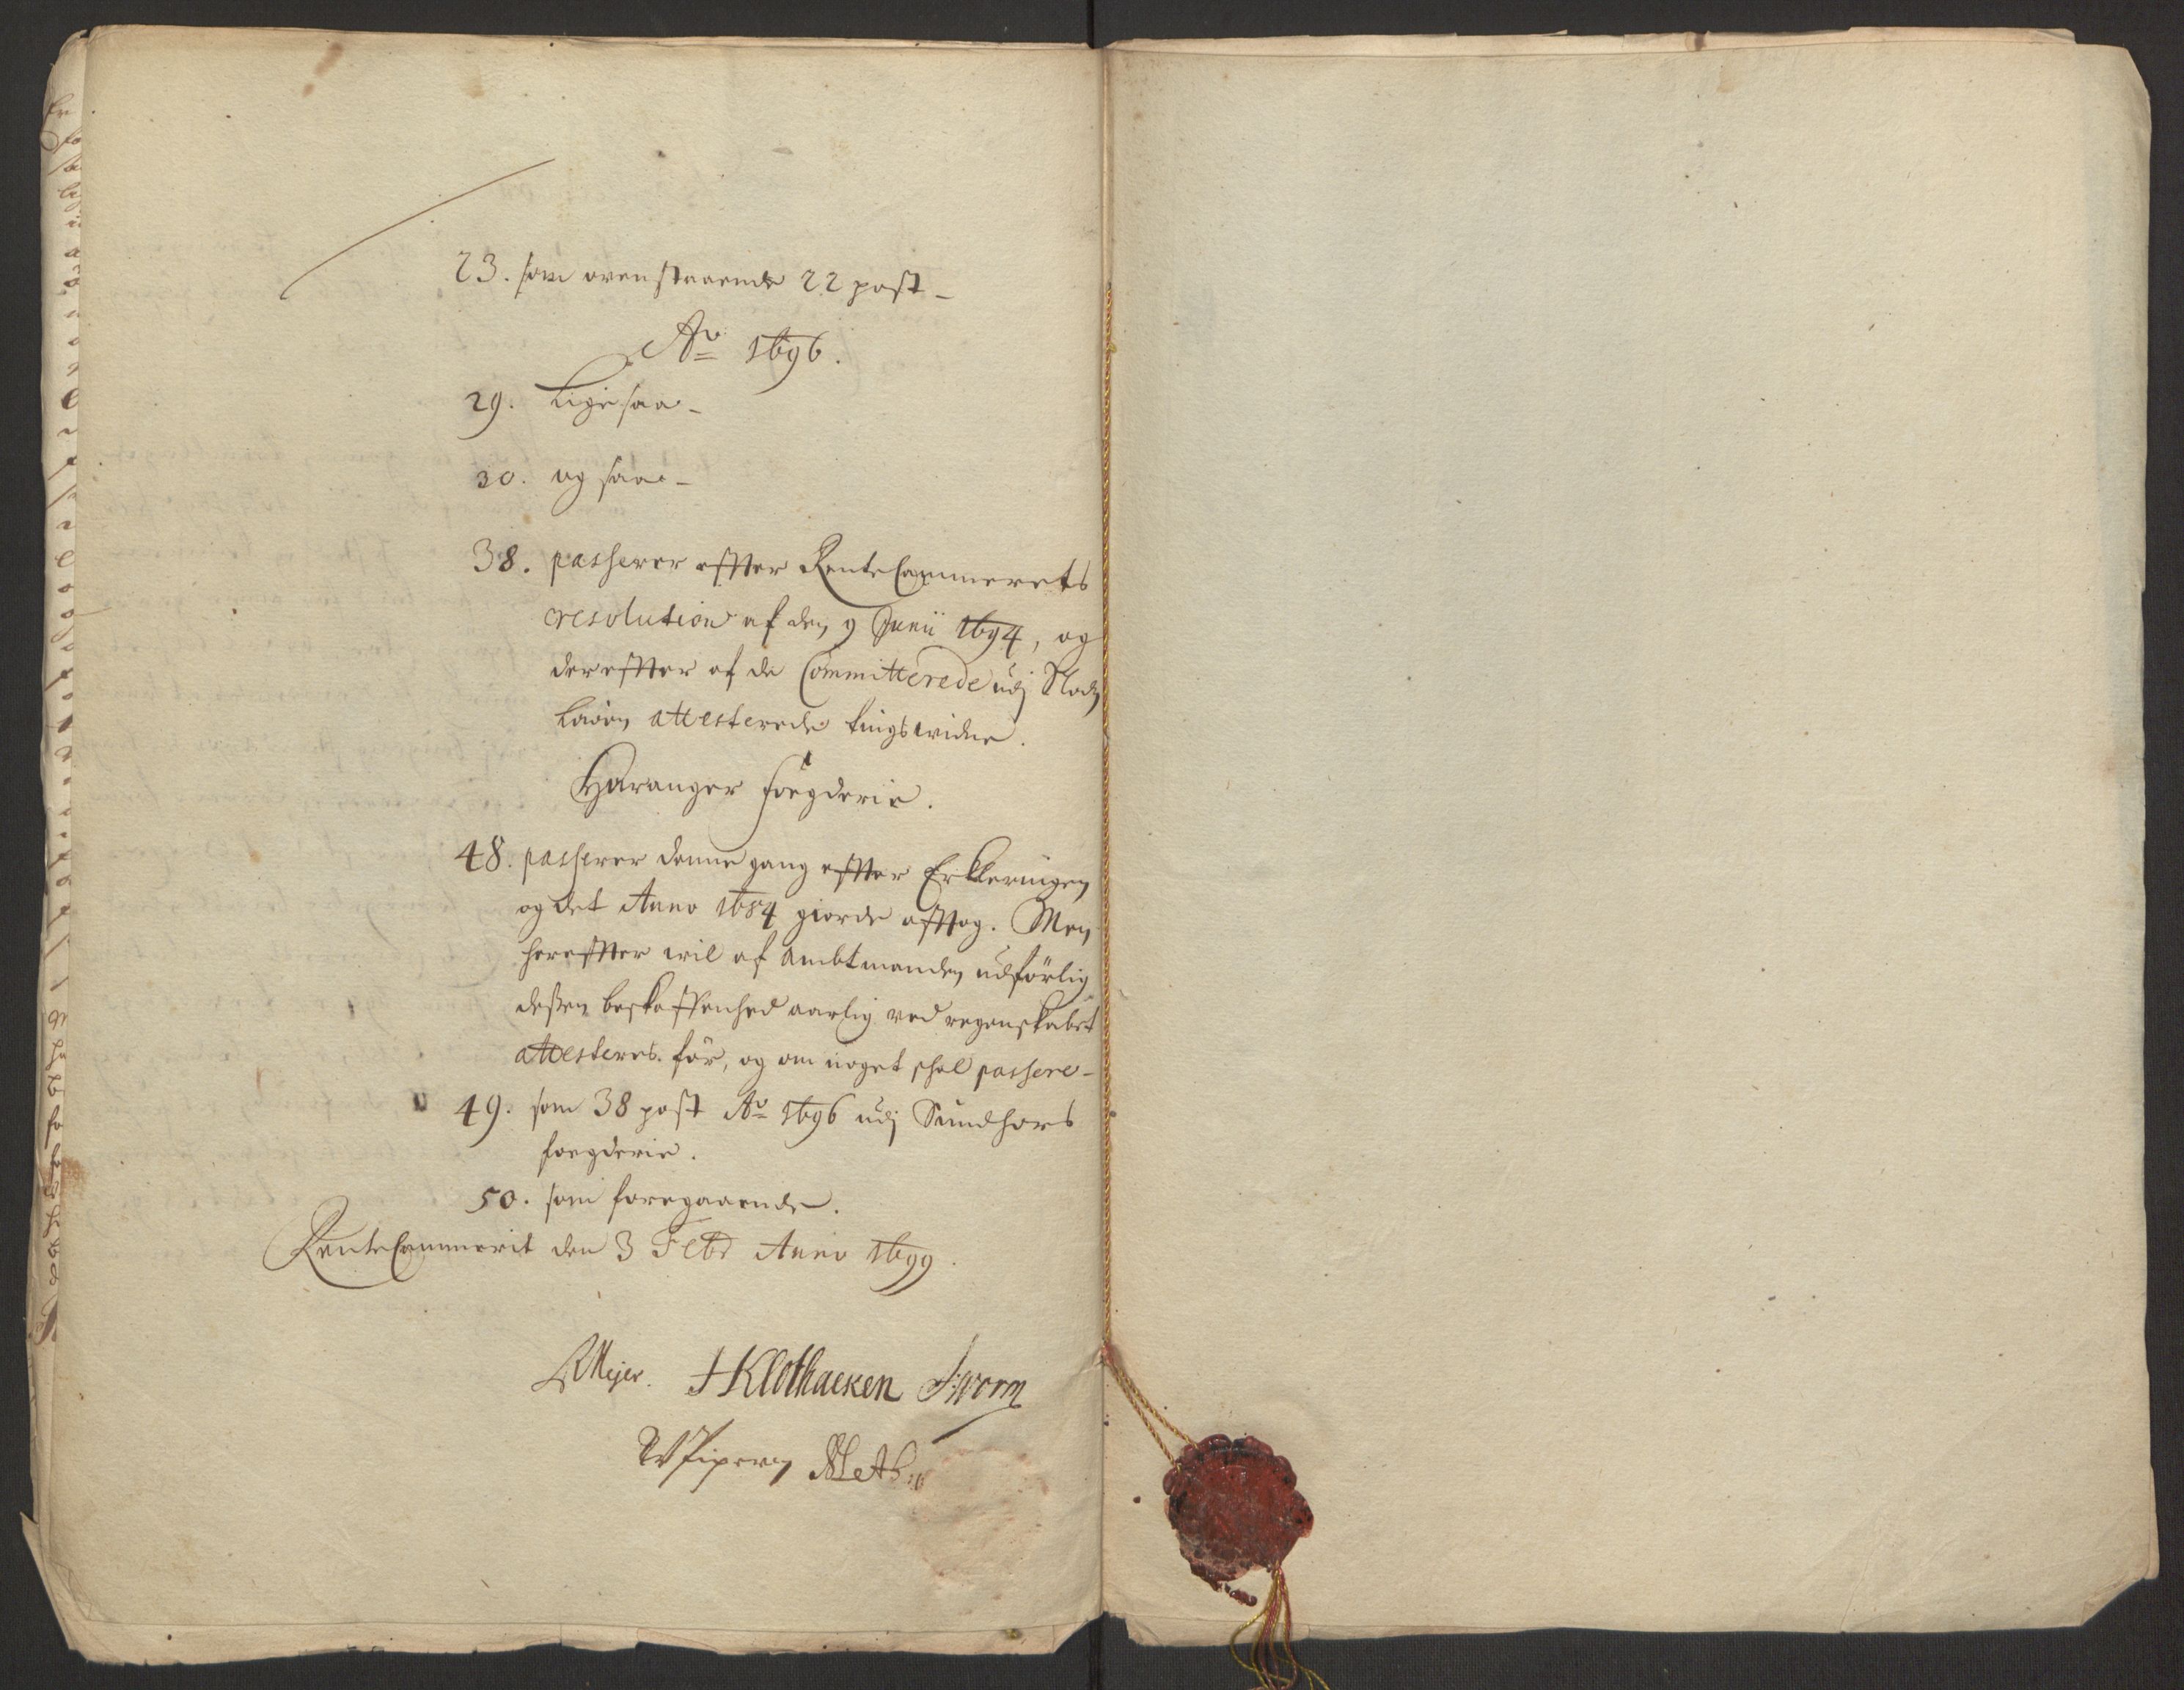 23. som ovenstaaende 22 post -
Ao 1696.
29. Ligesaa -
30. og saa -
38. passerer effter RenteCammerets
resolution af den 9 Junii 1694, og
dereffter af de Committerede udj
attesterede tingsvidne.
Haranger fougderie.
48. passerer denne gang effter Erkleringen
og det Anno 1684 giorde afftog. Men
hereffter vil af Ambtmanden udførlig
dessen beskaffenhed aarlig ved regenskabet
attesteres før, og om noget skal passere -
49. som 38 post Ao 1696 udj Sundhors
fougderie.
50. som foregaaende.
RenteCammerit den 3 Febr Anno 1699.
Meyer. HKlothacken Worm